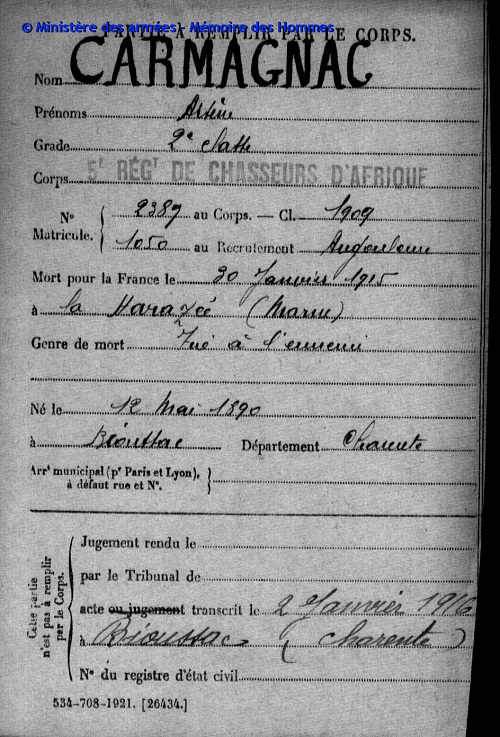 © Ministère des armées - Mémoire des Hommes
PARTIE À REMPLIR PAR LE CORPS.
Nom CARMAGNAC
Prénoms
Grade 2e classe
Corps 5E RÉGT DE CHASSEURS D'AFRIQUE
N° 2389 au Corps. — Cl. 1909
Matricule. 1050 au Recrutement Angoulême
Mort pour la France le 30 Janvier 1915
à la Harazée (Marne)
Genre de mort Tué à l'ennemi
Né le 12 Mai 1890
à Bioussac Département Charente
Arrt municipal (pr Paris et Lyon),
à défaut rue et N°.
Cette partie
n'est pas à remplir
par le Corps.
Jugement rendu le
par le Tribunal de
acte ou jugement transcrit le 2 Janvier 1916
à Bioussac (Charente)
N° du registre d'état civil
534-708-1921. [26434.]